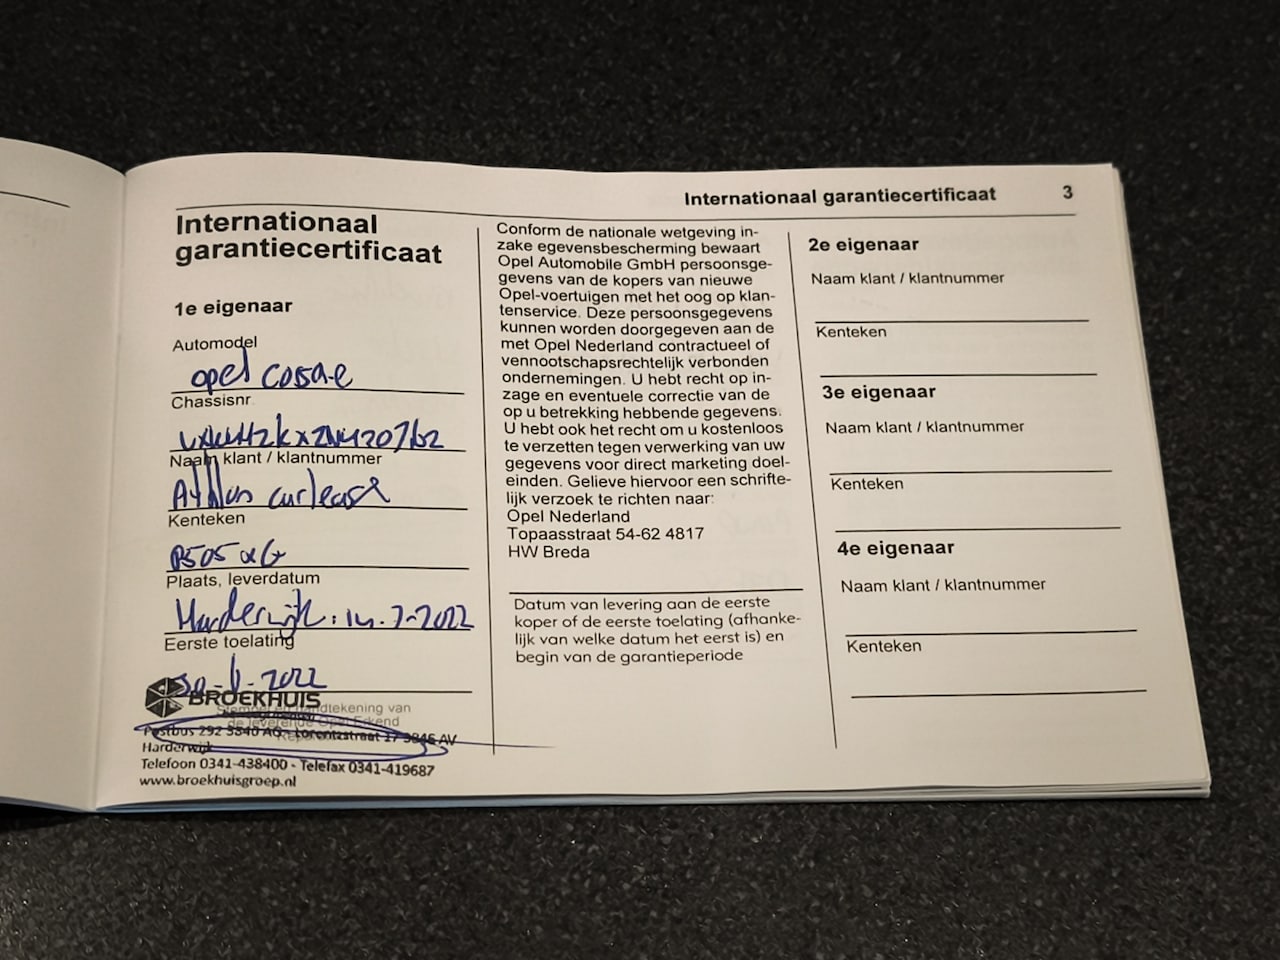 Internationaal garantiecertificaat 3
Internationaal
garantiecertificaat
1e eigenaar
Automodel
opel corsa-e
Chassisnr
Naam klant / klantnummer
Athlon carlease
Kenteken
Plaats, leverdatum
Harderwijk. 14.7-2022
Eerste toelating
BROEKHUIS
Stempel en handtekening van
de leverende Opel Erkend
Postbus 292 3840 AG - Lorentzstraat 17 3846 AV
Harderwijk
Telefoon 0341-438400 - Telefax 0341-419687
www.broekhuisgroep.nl
Conform de nationale wetgeving in-
zake egevensbescherming bewaart
Opel Automobile GmbH persoonsge-
gevens van de kopers van nieuwe
Opel-voertuigen met het oog op klan-
tenservice. Deze persoonsgegevens
kunnen worden doorgegeven aan de
met Opel Nederland contractueel of
vennootschapsrechtelijk verbonden
ondernemingen. U hebt recht op in-
zage en eventuele correctie van de
op u betrekking hebbende gegevens.
U hebt ook het recht om u kosteloos
te verzetten tegen verwerking van uw
gegevens voor direct marketing doel-
einden. Gelieve hiervoor een schrifte-
lijk verzoek te richten naar:
Opel Nederland
Topaasstraat 54-62 4817
HW Breda
Datum van levering aan de eerste
koper of de eerste toelating (afhanke-
lijk van welke datum het eerst is) en
begin van de garantieperiode
2e eigenaar
Naam klant / klantnummer
Kenteken
3e eigenaar
Naam klant / klantnummer
Kenteken
4e eigenaar
Naam klant / klantnummer
Kenteken